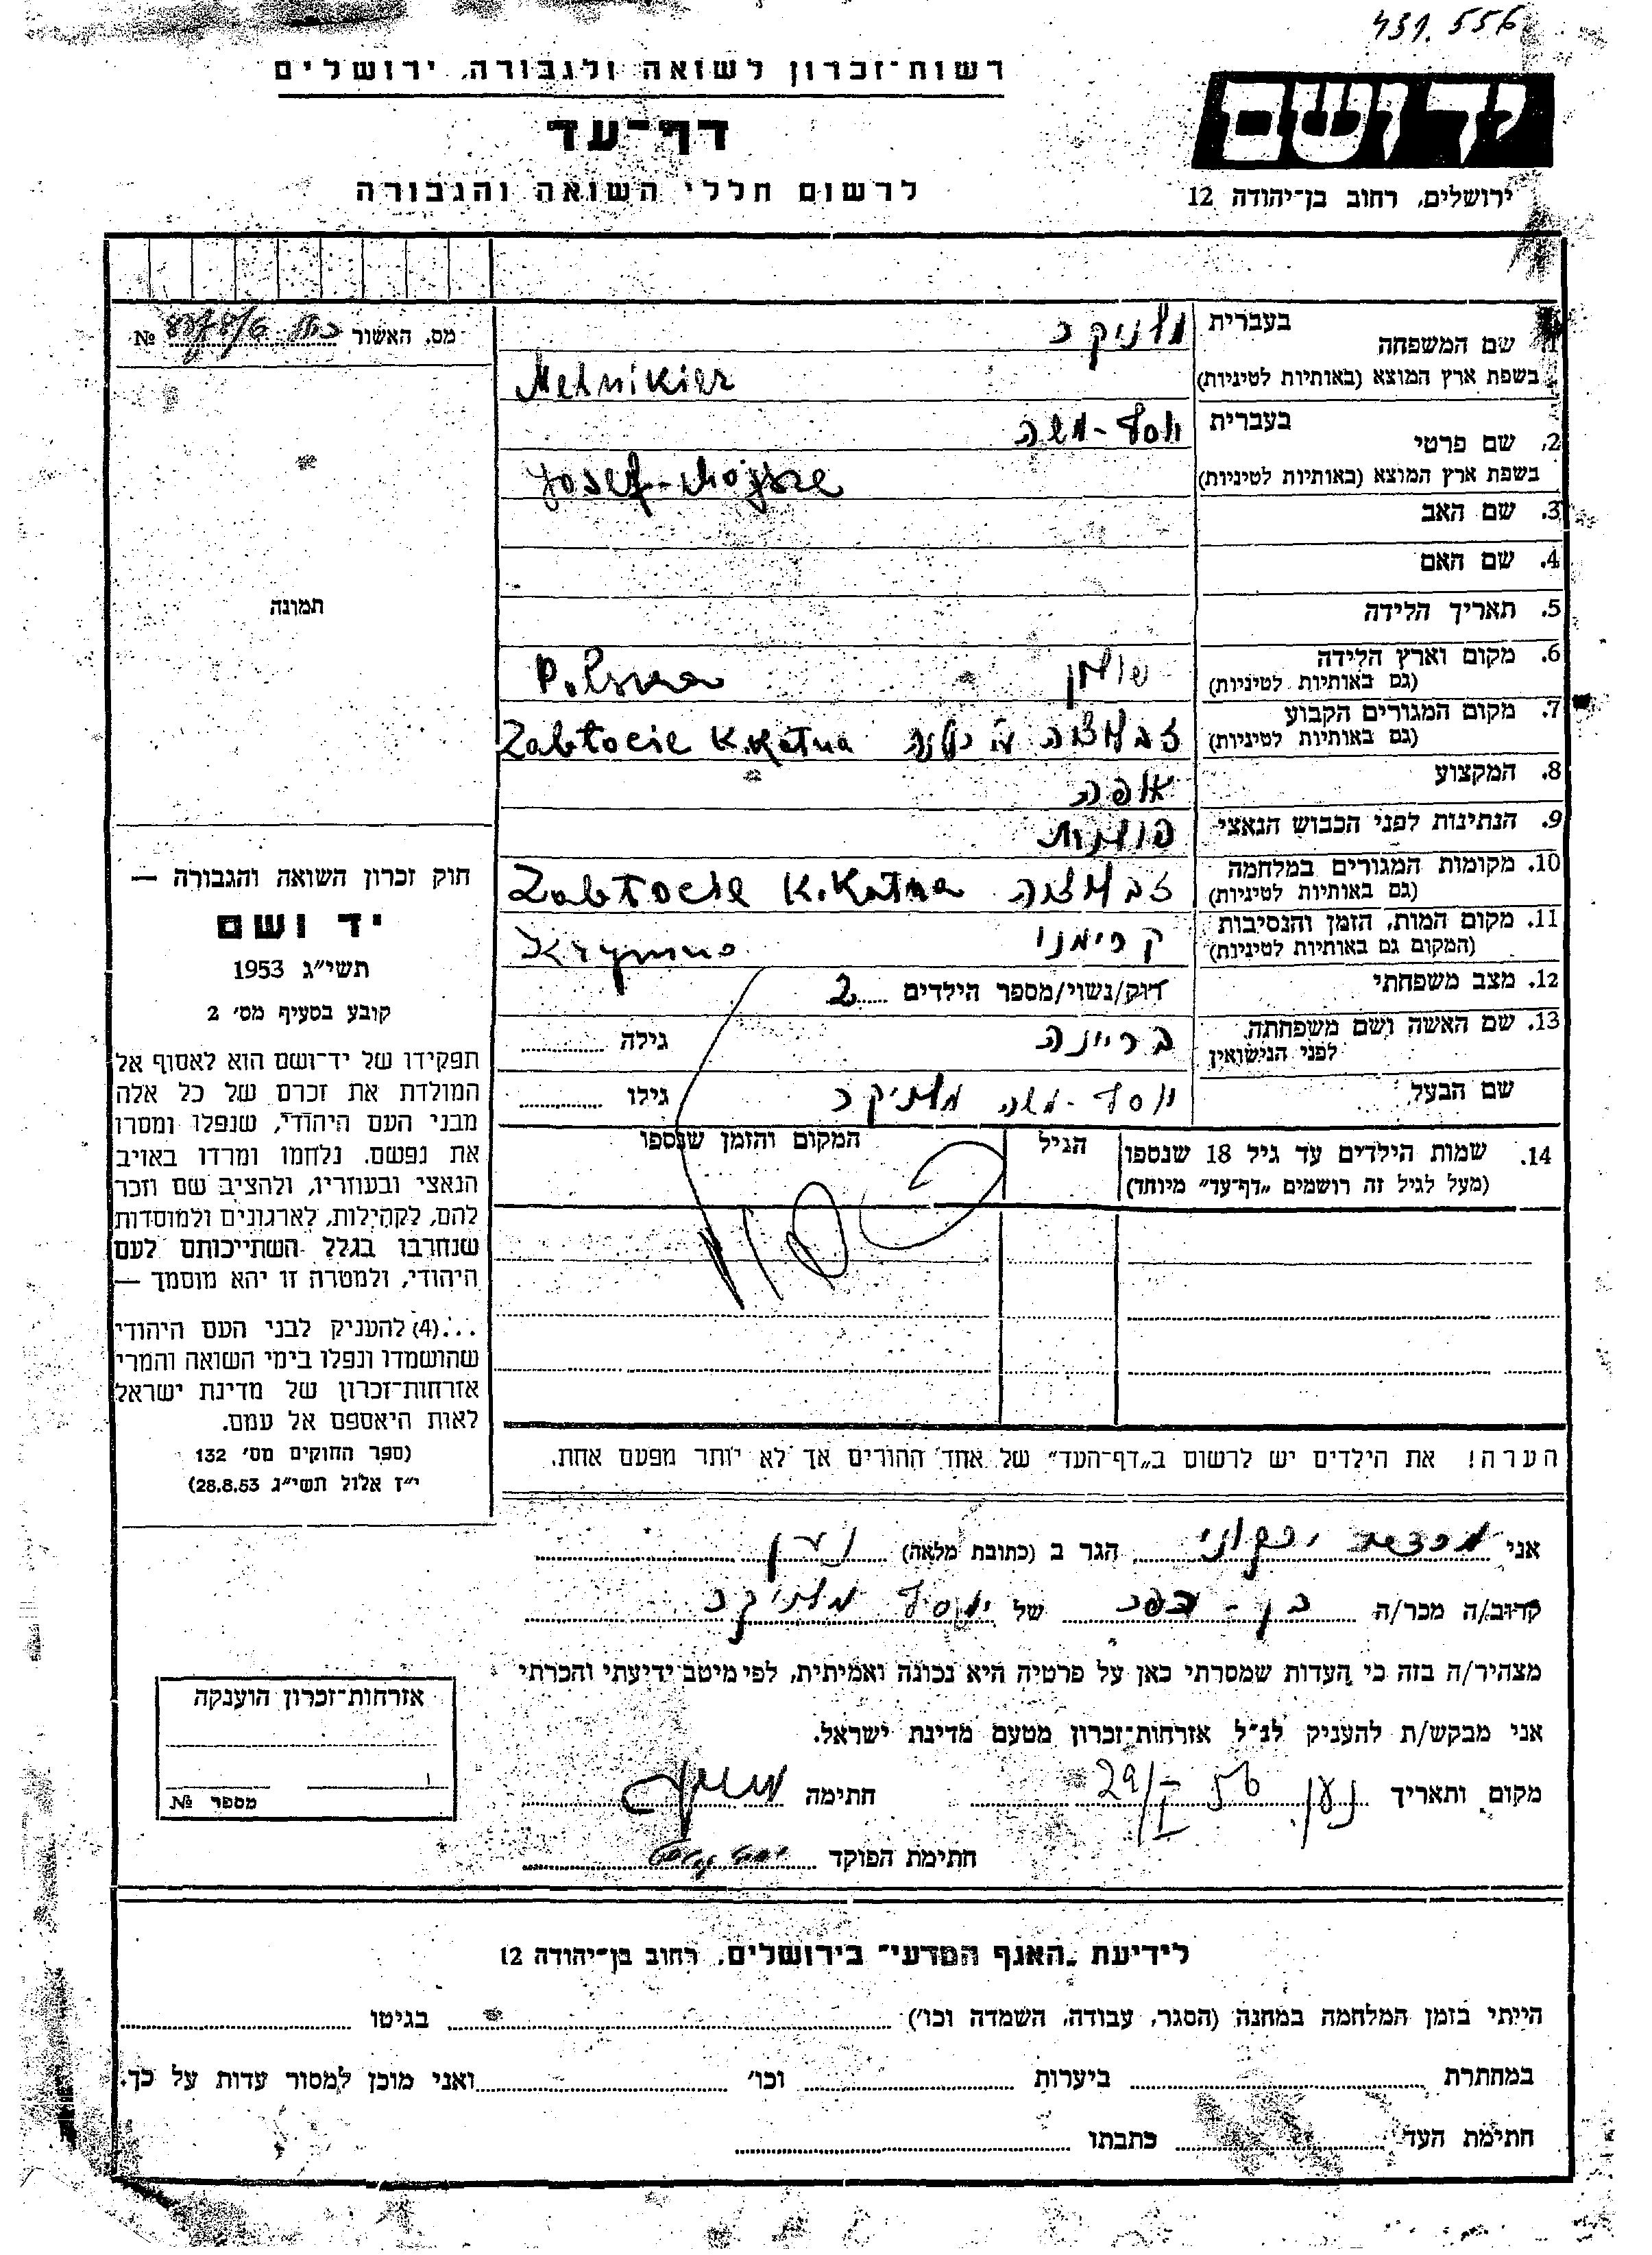 431.556
רשות־זכרון לשואה ולגבורה, ירושלים
דף־עד
לרשום חללי השואה והגבורה
יד ושם
ירושלים, רחוב בן־יהודה 12
מס. האשור № 
1. שם המשפחה
בעברית מלניקר
בשפת ארץ המוצא (באותיות לטיניות) Melnikier
2. שם פרטי
בעברית יוסף-משה
בשפת ארץ המוצא (באותיות לטיניות) Josef-Mojsze
3. שם האב
4. שם האם
5. תאריך הלידה
6. מקום וארץ הלידה פולין Polska
(גם באותיות לטיניות)
7. מקום המגורים הקבוע Zabłocie K.Kotna
(גם באותיות לטיניות)
8. המקצוע אופה
9. הנתינות לפני הכבוש הנאצי פולנית
10. מקומות המגורים במלחמה Zabłocie K.Kotna
(גם באותיות לטיניות)
11. מקום המות, הזמן והנסיבות קרימנו Krymno
(המקום גם באותיות לטיניות)
12. מצב משפחתי רוק/נשוי/מספר הילדים 2
13. שם האשה ושם משפחתה לפני הנישואין בריינה גילה
שם הבעל יוסף-משה מלניקר גילו
14. שמות הילדים עד גיל 18 שנספו הגיל המקום והזמן שנספו
(מעל לגיל זה רושמים "דף־עד" מיוחד)
הערה! את הילדים יש לרשום ב"דף־העד" של אחד ההורים אך לא יותר מפעם אחת.
תמונה
חוק זכרון השואה והגבורה —
יד ושם
תשי״ג 1953
קובע בסעיף מס׳ 2
תפקידו של יד־ושם הוא לאסוף אל
המולדת את זכרם של כל אלה
מבני העם היהודי, שנפלו ומסרו
את נפשם, נלחמו ומרדו באויב
הנאצי ובעוזריו, ולהציב שם וזכר
להם, לקהילות, לארגונים ולמוסדות
שנחרבו בגלל השתייכותם לעם
היהודי, ולמטרה זו יהא מוסמך —
...(4) להעניק לבני העם היהודי
שהושמדו ונפלו בימי השואה והמרי
אזרחות־זכרון של מדינת ישראל
לאות היאספם אל עמם.
(ספר החוקים מס׳ 132
י״ז אלול תשי״ג 28.8.53)
אני מרדכי הגר ב (כתובת מלאה) נען
קרוב/ה מכר/ה בן - כפר של יוסף מלניקר
מצהיר/ה בזה כי העדות שמסרתי כאן על פרטיה היא נכונה ואמיתית, לפי מיטב ידיעתי והכרתי
אני מבקש/ת להעניק לנ״ל אזרחות־זכרון מטעם מדינת ישראל.
מקום ותאריך נען 29/I 56 חתימה
חתימת הפוקד
אזרחות־זכרון הוענקה
מספר №
לידיעת „האגף המדעי״ בירושלים, רחוב בן־יהודה 12
הייתי בזמן המלחמה במחנה (הסגר, עבודה, השמדה וכו׳) בגיטו
במחתרת ביערות וכו׳ ואני מוכן למסור עדות על כך.
חתימת העד כתבתו